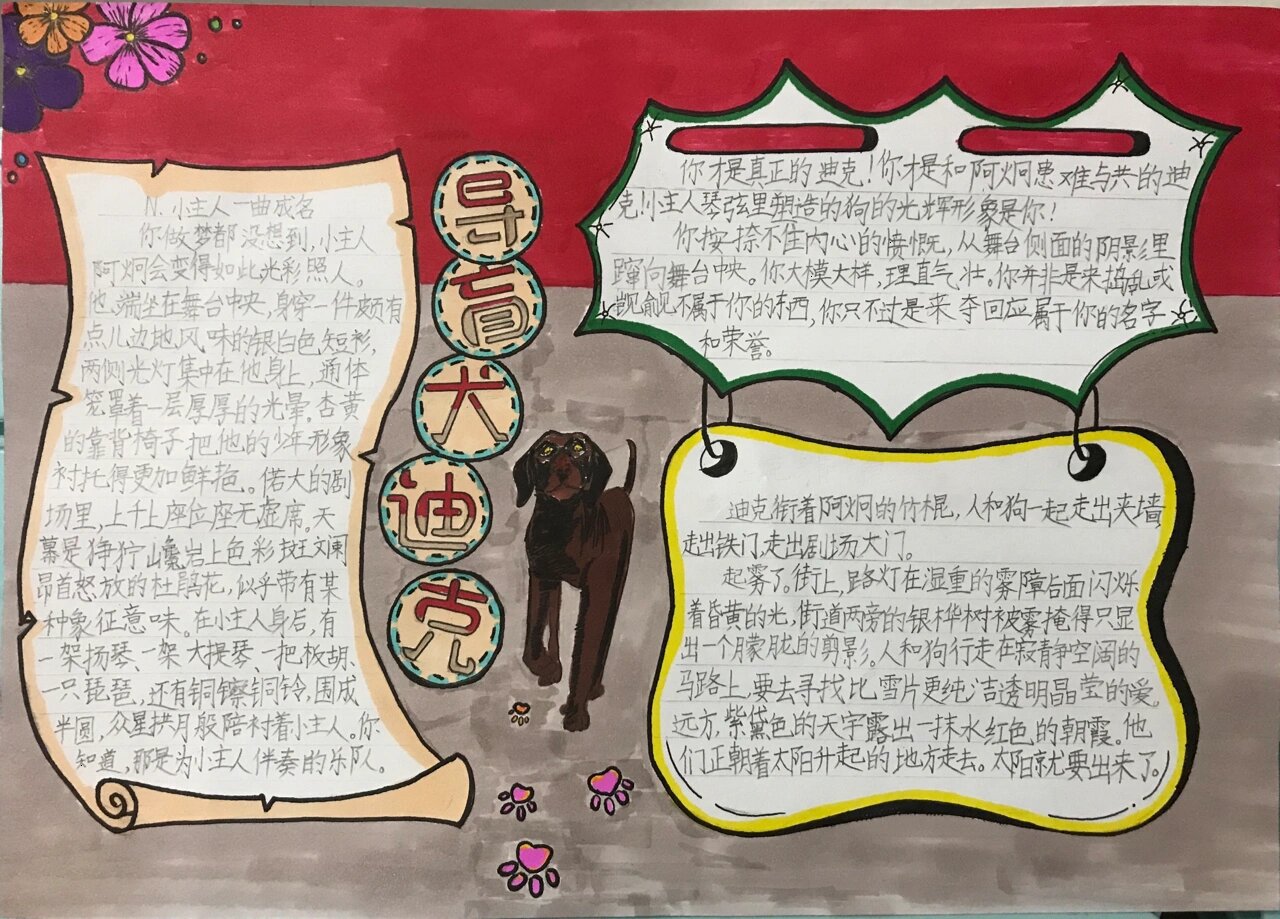 导盲犬迪克
N. 小主人一曲成名
你做梦都没想到,小主人
阿炯会变得如此光彩照人。
他端坐在舞台中央,身穿一件颇有
点儿边地风味的银白色短衫,
两侧光灯集中在他身上,通体
笼罩着一层厚厚的光晕。杏黄
的靠背椅子把他的少年形象
衬托得更加鲜艳。偌大的剧
场里,上千上座位座无虚席。天
幕是狰狞山巉岩上色彩斑斓
昂首怒放的杜鹃花,似乎带有某
种象征意味。在小主人身后,有
一架扬琴、一架大提琴、一把板胡、
一只琵琶,还有铜镲铜铃,围成
半圆,众星拱月般陪衬着小主人。你
知道,那是为小主人伴奏的乐队。
你才是真正的迪克!你才是和阿炯患难与共的迪
克!小主人琴弦里塑造的狗的光辉形象是你!
你按捺不住内心的愤慨,从舞台侧面的阴影里
蹿向舞台中央。你大模大样,理直气壮。你并非是来捣乱或
觊觎不属于你的东西,你只不过是来夺回应属于你的名字
和荣誉。
迪克衔着阿炯的竹棍,人和狗一起走出夹墙
走出铁门,走出剧场大门。
起雾了。街上,路灯在湿重的雾障后面闪烁
着昏黄的光,街道两旁的银桦树被雾掩得只显
出一个朦胧的剪影。人和狗行走在寂静空阔的
马路上,要去寻找比雪片更纯洁透明晶莹的爱。
远方,紫黛色的天宇露出一抹水红色的朝霞。他
们正朝着太阳升起的地方走去。太阳就要出来了。